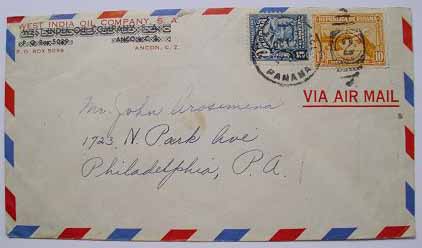 WEST INDIA OIL COMPANY S. A.
P. O. BOX 5099
ANCON, C. Z.
REPUBLICA DE PANAMA
10
PANAMA
VIA AIR MAIL
Mr. John Arosemena
1723 N. Park Ave
Philadelphia, P.A.